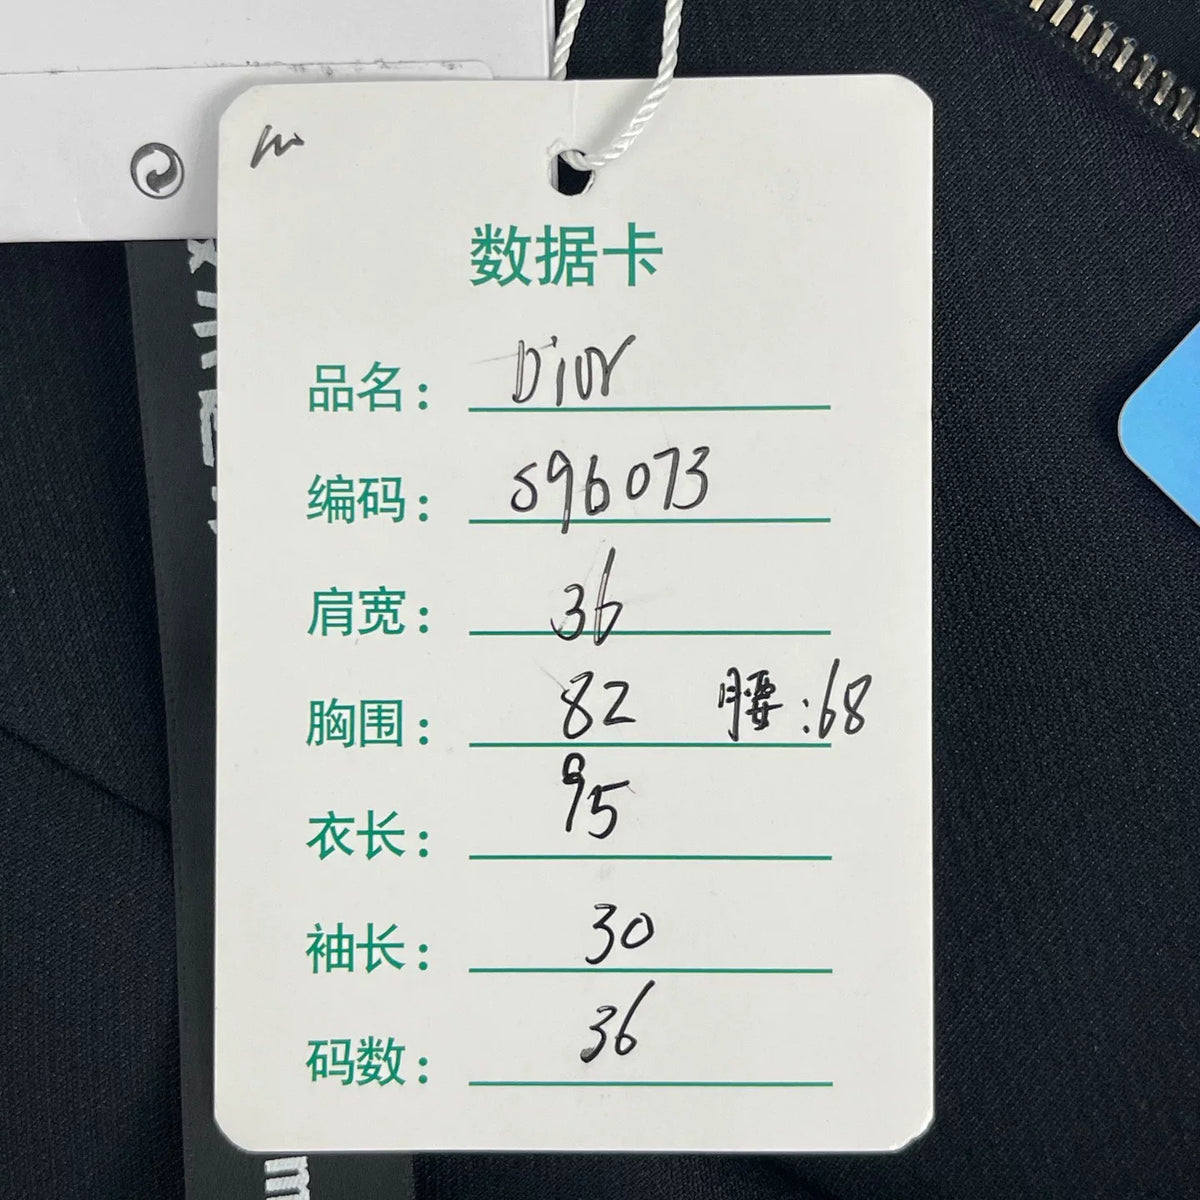 数据卡
品名： Dior
编码： S96073
肩宽： 36
胸围： 82 腰:68
衣长： 95
袖长： 30
码数： 36
m